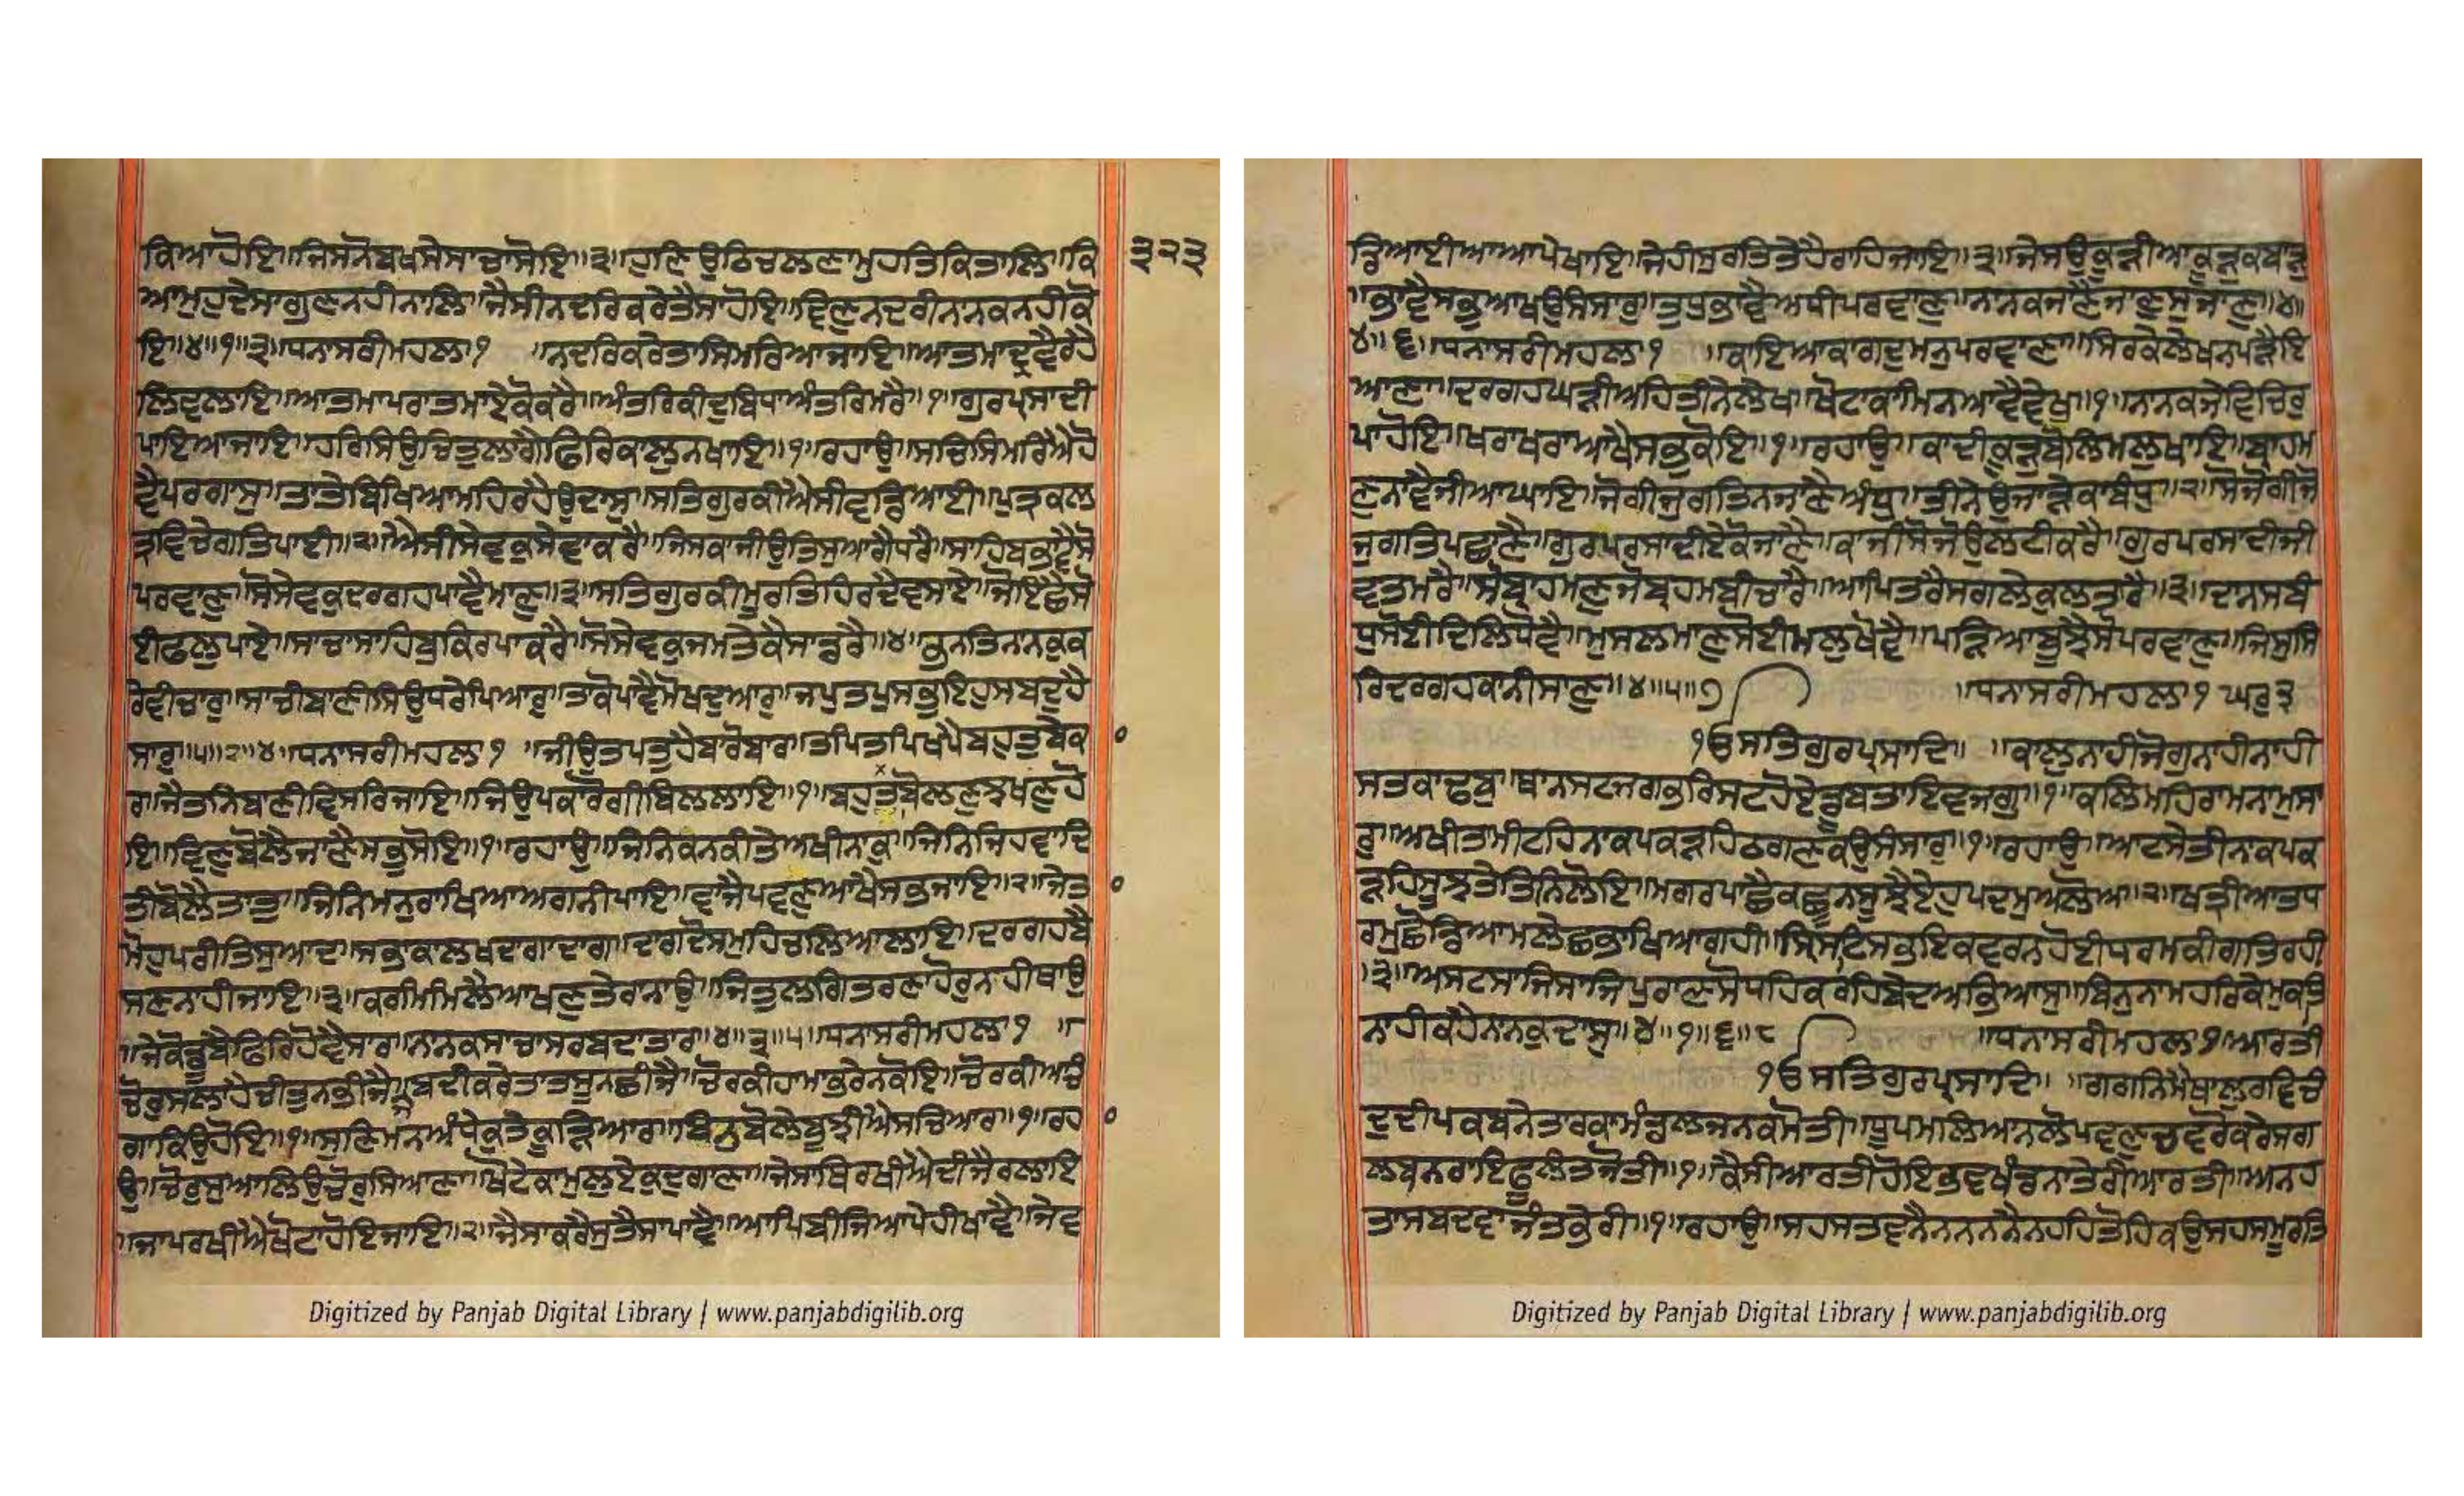 ਕਿਆਹੋਇ॥ਜਿਸਨੋਬਖਸੇਸਾਚਾਸੋਇ॥੩॥ਹੁਣਿਉਠਿਚਲਣਾਮੁਹਤਿਕਿਤਾਲਿ॥ਕਿ
੩੨੩
ਆਮੁਹੁਦੇਸਾਗੁਣਨਹੀਨਾਲਿ॥ਜੈਸੀਨਦਰਿਕਰੇਤੈਸਾਹੋਇ॥ਵਿਣੁਨਦਰੀਨਾਨਕਨਹੀਕੋ
ਇ॥੪॥੧॥੩॥ਧਨਾਸਰੀਮਹਲਾ੧ ॥ਨਦਰਿਕਰੇਤਾਸਿਮਰਿਆਜਾਇ॥ਆਤਮਾਦ੍ਰਵੈਰਹੈ
ਲਿਵਲਾਇ॥ਆਤਮਾਪਰਾਤਮਾਏਕੋਕਰੈ॥ਅੰਤਰਿਕੀਦੁਬਿਧਾਅੰਤਰਿਮਰੈ॥੧॥ਗੁਰਪ੍ਰਸਾਦੀ
ਪਾਇਆਜਾਇ॥ਹਰਿਸਿਉਚਿਤੁਲਾਗੈਫਿਰਿਕਾਲੁਨਖਾਇ॥੧॥ਰਹਾਉ॥ਸਚਿਸਿਮਰਿਐਹੋ
ਵੈਪਰਗਾਸੁ॥ਤਾਤੇਬਿਖਿਆਮਹਿਰਹੈਉਦਾਸੁ॥ਸਤਿਗੁਰਕੀਐਸੀਵਡਿਆਈ॥ਪੁਤ੍ਰਕਲ
ਤ੍ਰਵਿਚੇਗਤਿਪਾਈ॥੨॥ਐਸੀਸੇਵਕੁਸੇਵਾਕਰੈ॥ਜਿਸਕਾਜੀਉਤਿਸੁਆਗੈਧਰੈ॥ਸਾਹਿਬਭਾਵੈਸੋ
ਪਰਵਾਣੁ॥ਸੋਸੇਵਕੁਦਰਗਹਪਾਵੈਮਾਣੁ॥੩॥ਸਤਿਗੁਰਕੀਮੂਰਤਿਹਿਰਦੈਵਸਾਏ॥ਜੋਇਛੈਸੋ
ਈਫਲੁਪਾਏ॥ਸਾਚਾਸਾਹਿਬੁਕਿਰਪਾਕਰੈ॥ਸੋਸੇਵਕੁਜਮਤੇਕੈਸਾਡਰੈ॥੪॥ਭਨਤਿਨਾਨਕੁਕ
ਰੇਵੀਚਾਰੁ॥ਸਾਚੀਬਾਣੀਸਿਉਧਰੇਪਿਆਰੁ॥ਤਾਕੋਪਾਵੈਮੋਖਦੁਆਰੁ॥ਜਪੁਤਪੁਸਭੁਇਹੁਸਬਦੁਹੈ
ਸਾਰੁ॥੫॥੨॥੪॥ਧਨਾਸਰੀਮਹਲਾ੧ ॥ਜੀਉਤਪਤੁਹੈਬਾਰੋਬਾਰ॥ਤਪਿਤਪਿਖਪੈਬਹੁਤੁਬੇਕ
ਰਾਜੈਤਨਿਬਾਣੀਵਿਸਰਿਜਾਇ॥ਜਿਉਪਕਾਰੋਗੀਬਿਲਲਾਇ॥੧॥ਬਹੁਤਾਬੋਲਣੁਝਖਣੁਹੋ
ਇ॥ਵਿਣੁਬੋਲੈਜਾਣੈਸਭੁਸੋਇ॥੧॥ਰਹਾਉ॥ਜਿਨਿਕਨਕੀਤੇਅਖੀਨਾਕੁ॥ਜਿਨਿਜਿਹਵਾਦਿ
ਤੀਬੋਲੈਤਾਤੁ॥ਜਿਨਿਮਨੁਰਾਖਿਆਅਗਨੀਪਾਇ॥ਵਾਜੈਪਵਣੁਆਖੈਸਭਜਾਇ॥੨॥ਜੇਤੁ
ਮੋਹੁਪਰੀਤਿਸੁਆਦ॥ਸਭਾਕਾਲਖਦਾਗਾਦਾਗ॥ਦਾਗਦੋਸਮੁਹਿਚਲਿਆਲਾਇ॥ਦਰਗਹਬੈ
ਸਣਨਾਹੀਜਾਇ॥੩॥ਕਰਮਿਮਿਲੈਆਖਣੁਤੇਰਾਨਾਉ॥ਜਿਤੁਲਗਿਤਰਣਾਹੋਰੁਨਹੀਥਾਉ
॥ਜੇਕੋਡੂਬੈਫਿਰਿਹੋਵੈਸਾਰ॥ਨਾਨਕਸਾਚਾਸਰਬਦਾਤਾਰ॥੪॥੩॥੫॥ਧਨਾਸਰੀਮਹਲਾ੧ ॥
ਚੋਰੁਸਲਾਹੇਚੀਤੁਨਭੀਜੈ॥ਬਦੀਕਰੇਤਾਤਸੂਨਛੀਜੈ॥ਚੋਰਕੀਹਾਮਾਭਰੇਨਕੋਇ॥ਚੋਰਕੀਆਚੰ
ਗਾਕਿਉਹੋਇ॥੧॥ਸੁਣਿਮਨਅੰਧੇਕੁਤੇਕੂੜਿਆਰ॥ਬਿਨੁਬੋਲੇਬੂਝੀਐਸਚਿਆਰ॥੧॥ਰਹ
ਉ॥ਚੋਰੁਸੁਆਲਿਉਚੋਰੁਸਿਆਣਾ॥ਖੋਟੇਕਾਮੁਲੁਏਕੁਦੁਗਾਣਾ॥ਜੇਸਾਥਿਰਖੀਐਦੀਜੈਰਲਾਇ
॥ਜਾਪਰਖੀਐਖੋਟਾਹੋਇਜਾਇ॥੨॥ਜੈਸਾਕਰੇਸੁਤੈਸਾਪਾਵੈ॥ਆਪਿਬੀਜਿਆਪੇਹੀਖਾਵੈ॥ਜੇਵ
Digitized by Panjab Digital Library | www.panjabdigilib.org
ਡਿਆਈਆਆਪੇਖਾਇ॥ਜੇਹੀਸੁਰਤਿਤੇਹੈਰਾਹਿਜਾਇ॥੩॥ਜੇਸਉਕੂੜੀਆਕੂੜੁਕਬਾੜੁ
॥ਭਾਵੈਸਭੁਆਖਉਸੰਸਾਰੁ॥ਤੁਧੁਭਾਵੈਅਧੀਪਰਵਾਣੁ॥ਨਾਨਕਜਾਣੈਜਾਣੁਸੁਜਾਣੁ॥੪॥
੪॥੬॥ਧਨਾਸਰੀਮਹਲਾ੧ ॥ਕਾਇਆਕਾਗਦੁਮਨੁਪਰਵਾਣਾ॥ਸਿਰਕੇਲੇਖਨਪੜੈਇ
ਆਣਾ॥ਦਰਗਹਘੜੀਅਹਿਤੀਨੇਲੇਖ॥ਖੋਟਾਕਾਮਿਨਆਵੈਵੇਖੁ॥੧॥ਨਾਨਕਜੇਵਿਚਿਰੁ
ਪਾਹੋਇ॥ਖਰਾਖਰਾਆਖੈਸਭੁਕੋਇ॥੧॥ਰਹਾਉ॥ਕਾਦੀਕੂੜੁਬੋਲਿਮਲੁਖਾਇ॥ਬ੍ਰਾਹਮ
ਣਨਾਵੈਜੀਆਘਾਇ॥ਜੋਗੀਜੁਗਤਿਨਜਾਣੈਅੰਧੁ॥ਤੀਨੇਓਜਾੜੇਕਾਬੰਧੁ॥੨॥ਸੋਜੋਗੀਜੋ
ਜੁਗਤਿਪਛਾਣੈ॥ਗੁਰਪਰਸਾਦੀਏਕੋਜਾਣੈ॥ਕਾਜੀਸੋਜੋਉਲਟੀਕਰੈ॥ਗੁਰਪਰਸਾਦੀਜੀ
ਵਤੁਮਰੈ॥ਸੋਬ੍ਰਾਹਮਣੁਜੋਬ੍ਰਹਮਬੀਚਾਰੈ॥ਆਪਿਤਰੈਸਗਲੇਕੁਲਤਾਰੈ॥੩॥ਦਾਨਸਬੰ
ਧੁਸੋਈਦਿਲਿਧੋਵੈ॥ਮੁਸਲਮਾਣੁਸੋਈਮਲੁਖੋਵੈ॥ਪੜਿਆਬੂਝੈਸੋਪਰਵਾਣੁ॥ਜਿਸੁਸਿ
ਰਿਦਰਗਹਕਾਨੀਸਾਣੁ॥੪॥੫॥੭ ॥ਧਨਾਸਰੀਮਹਲਾ੧ ਘਰੁ੩
ੴਸਤਿਗੁਰਪ੍ਰਸਾਦਿ॥ ॥ਕਾਲੁਨਾਹੀਜੋਗੁਨਾਹੀਨਾਹੀ
ਸਤਕਾਢਬੁ॥ਥਾਨਸਟਜਗਭਰਿਸਟਹੋਏਡੂਬਤਾਇਵਜਗੁ॥੧॥ਕਲਿਮਹਿਰਾਮਨਾਮੁਸਾ
ਰੁ॥ਅਖੀਤਮੀਟਹਿਨਾਕਪਕੜਹਿਠਗਣਕਉਸੰਸਾਰੁ॥੧॥ਰਹਾਉ॥ਆਟਸੇਤੀਨਾਕਪਕ
ੜਹਿਸੂਝਤੇਤਿਨਿਲੋਇ॥ਮਗਰਪਾਛੈਕਛੂਨਸੂਝੈਏਹੁਪਦਮੁਅਲੋਅ॥੨॥ਖਤ੍ਰੀਆਤਧ
ਰਮੁਛੋਡਿਆਮਲੇਛਭਾਖਿਆਗਹੀ॥ਸ੍ਰਿਸਟਿਸਭਇਕਵਰਨਹੋਈਧਰਮਕੀਗਤਿਰਹੀ
॥੩॥ਅਸਟਸਾਜਿਸਾਜਿਪੁਰਾਣਸੋਧਹਿਕਰਹਿਬੇਦਅਭਿਆਸੁ॥ਬਿਨੁਨਾਮਹਰਿਕੇਮੁਕਤਿ
ਨਾਹੀਕਹੈਨਾਨਕੁਦਾਸੁ॥੪॥੧॥੬॥੮ ॥ਧਨਾਸਰੀਮਹਲਾ੧॥ਆਰਤੀ
ੴਸਤਿਗੁਰਪ੍ਰਸਾਦਿ॥ ॥ਗਗਨਿਮੈਥਾਲੁਰਵਿਚੰ
ਦੁਦੀਪਕਬਨੇਤਾਰਕਾਮੰਡਲਜਨਕਮੋਤੀ॥ਧੂਪਮਲਿਆਨਲੋਪਵਣੁਚਵਰੋਕਰੇਸਗ
ਲਬਨਰਾਇਫੂਲੰਤਜੋਤੀ॥੧॥ਕੈਸੀਆਰਤੀਹੋਇਭਵਖੰਡਨਾਤੇਰੀਆਰਤੀ॥ਅਨਹ
ਤਾਸਬਦਵਾਜੰਤਭੇਰੀ॥੧॥ਰਹਾਉ॥ਸਹਸਤਵਨੈਨਨਨਨੈਨਹਹਿਤੋਹਿਕਉਸਹਸਮੂਰਤਿ
Digitized by Panjab Digital Library | www.panjabdigilib.org